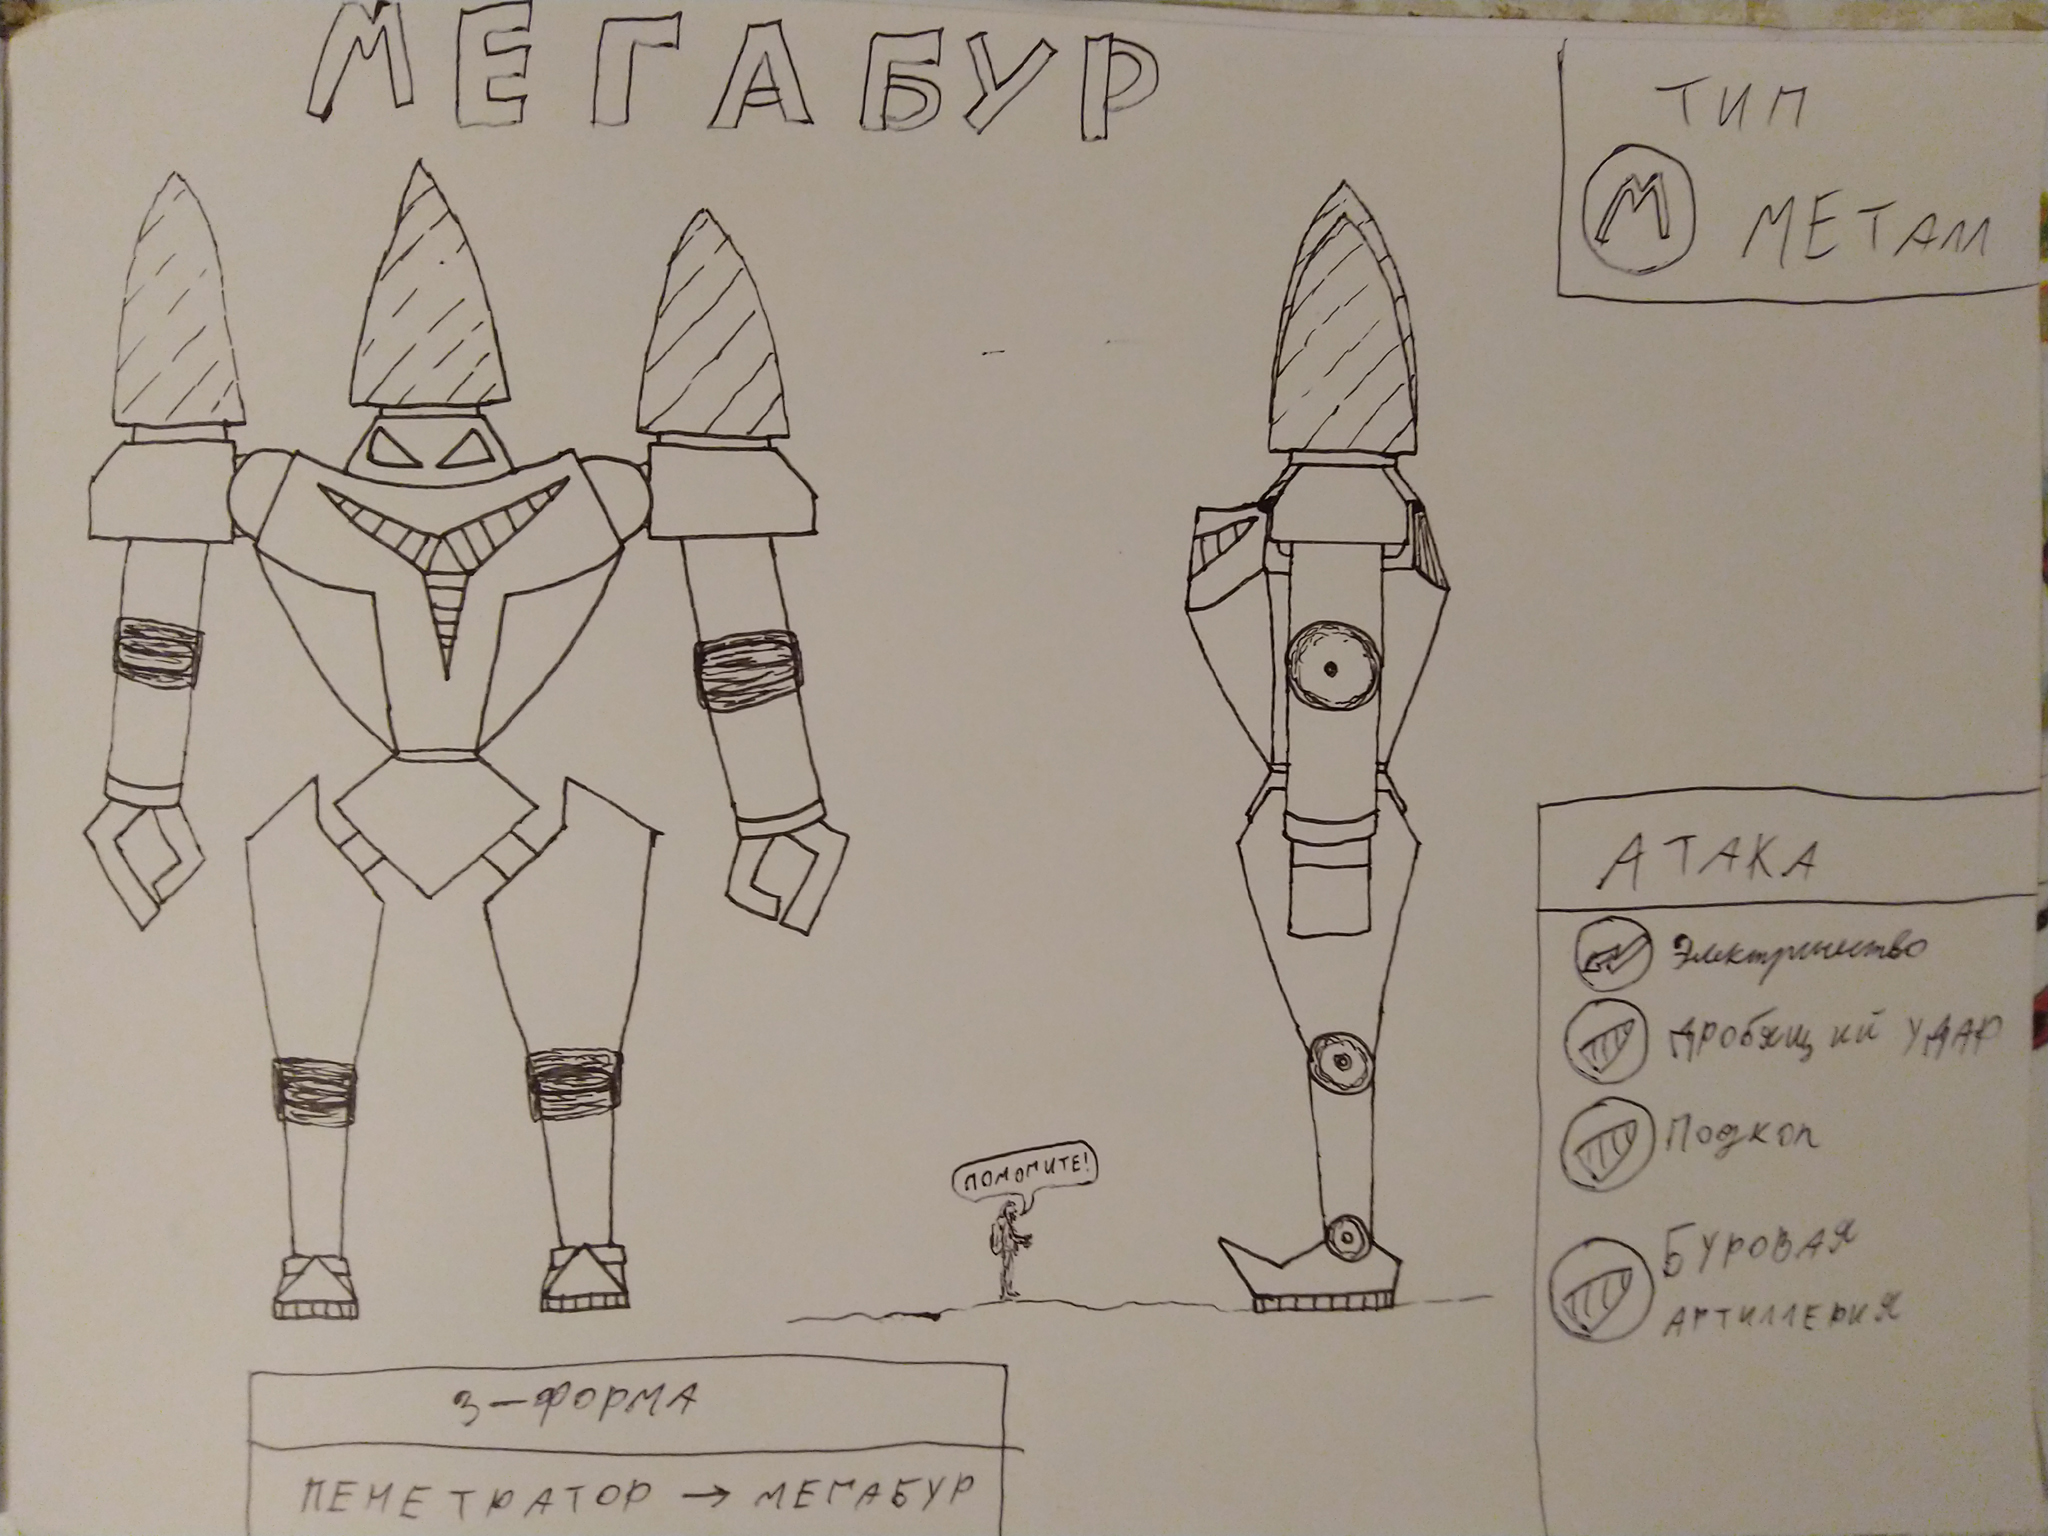 МЕГАБУР
ТИП
М МЕТАЛЛ
АТАКА
Электричество
Дробящий удар
Подкоп
Буровая
артиллерия
ПОМОГИТЕ!
3-ФОРМА
ПЕНЕТРАТОР → МЕГАБУР